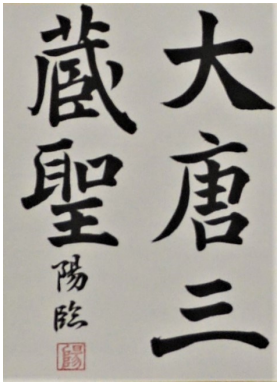 大唐三
蔵聖
陽臨
陽